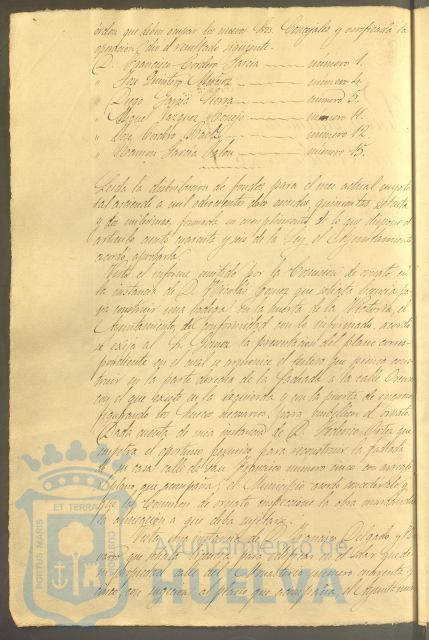 orden que deben ocupar los nuevos Sres. Concejales y verificada la
operacion, dió el resultado siguiente.
D. Francisco Cordero García número 1.
" José Quintero número 4.
" Diego García Sierra número 5.
" Miguel Vazquez número 11.
" José Cordero número 12.
" Ramon García número 15.
Leida la distribucion de fondos para el mes actual cuyo to-
tal asciende a mil ochocientos escudos, quinientas
y milésimas, formada en cumplimiento de lo que dispone el
articulo ciento cuarenta y seis de la Ley, el Ayuntamiento
acordó aprobarla.
Visto el informe emitido por la Comision de ornato en
la instancia de D. Nicolás Gomez que solicita licencia pa-
ra construir una bodega en la huerta de la Victoria, el
Ayuntamiento, de conformidad con lo informado, acordó
se exija al Sr. Gomez la presentacion del plano corres-
pondiente en el cual se que piensa cons-
truir en la parte derecha de la fachada a la calle
con el que existe en la izquierda y con la puerta de
los huecos necesarios para el ornato.
Dada cuenta de una instancia de D. Federico que
impetra el oportuno permiso para reconstruir la fachada
de su casa calle de San Francisco número cinco con arreglo
al plano que acompaña, el Municipio acordó concederlo y
que la Comision de ornato inspeccione la obra marcando
la alineacion a que deba sujetarse.
Vista una instancia de D. Delgado y
que
propiedad calle del Monasterio número cuarenta y
con sujecion al plano que acompaña, el Ayuntamien-
PORTUS MARIS
ET TERRAE
CUSTODIA
Ayuntamiento de
HUELVA